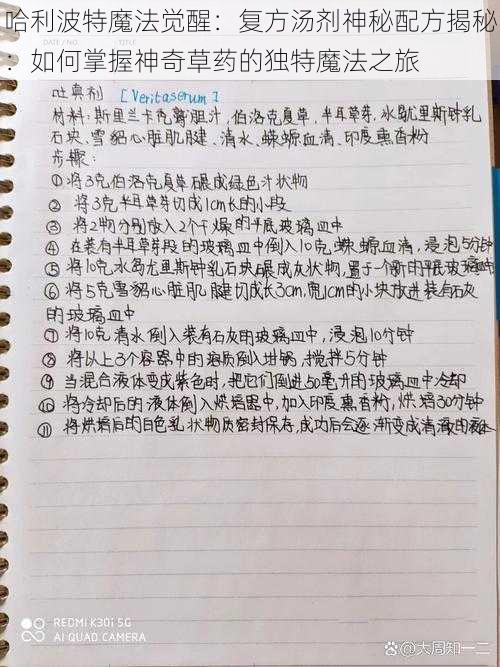 哈利波特魔法觉醒：复方汤剂神秘配方揭秘
：如何掌握神奇草药的独特魔法之旅
吐真剂 [Veritaserum]
材料:斯里兰卡 胆汁,伯洛克夏草,半耳草芽,水 尤里斯钟乳
石块,雪貂心脏肌腱,清水,蝾螈血清,印度熏香粉
步骤:
①将3克伯洛克夏草碾成绿色汁状物
② 将3克半耳草芽切成1cm长的小段
③ 将2物分别放入2个干燥的平底玻璃皿中
④ 在装有半耳草芽段的玻璃皿中倒入10克蝾螈血清,浸泡5分钟
⑤ 将10克水 尤里斯钟乳石块碾成灰状物,置于一个新的平底玻璃皿中
⑥ 将5克雪貂心脏肌腱切成长3cm,宽1cm的小块放进装有石灰
的玻璃皿中
⑦ 将10克清水倒入装有石灰的玻璃皿中,浸泡10分钟
⑧ 将以上3个容器中的溶质倒入坩锅,搅拌5分钟
⑨ 当混合液体变成紫色时,把它们倒进50毫升的玻璃皿中冷却
⑩ 将冷却后的液体倒入烘焙器中,加入印度熏香粉,烘焙30分钟
⑪ 将烘焙后的白色乳状物质密封保存,成功后会逐渐变成清澈的液体
REDMI K30i 5G
AI QUAD CAMERA
大周知一二